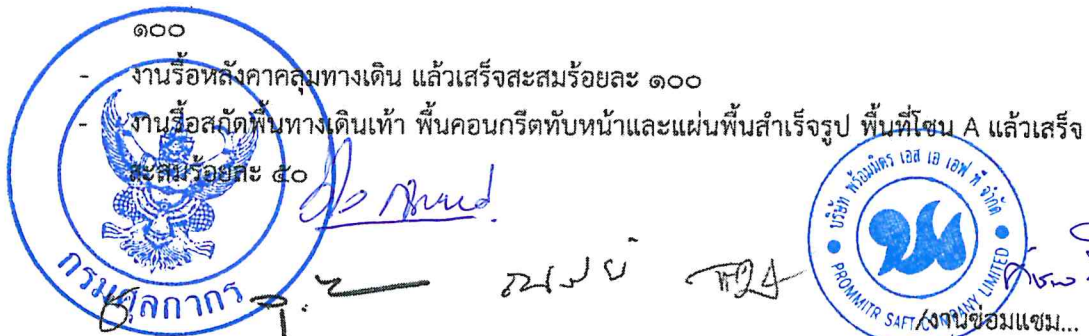 ๑๐๐
- งานรื้อหลังคาคลุมทางเดิน แล้วเสร็จสะสมร้อยละ ๑๐๐
- งานรื้อสกัดพื้นทางเดินเท้า พื้นคอนกรีตทับหน้าและแผ่นพื้นสำเร็จรูป พื้นที่โซน A แล้วเสร็จ
สะสมร้อยละ ๕๐
กรมศุลกากร
บริษัท พร้อมมิตร เอส เอ เอฟ ที จำกัด
PROMMITR SAFT COMPANY LIMITED
/งานซ่อมแซม...